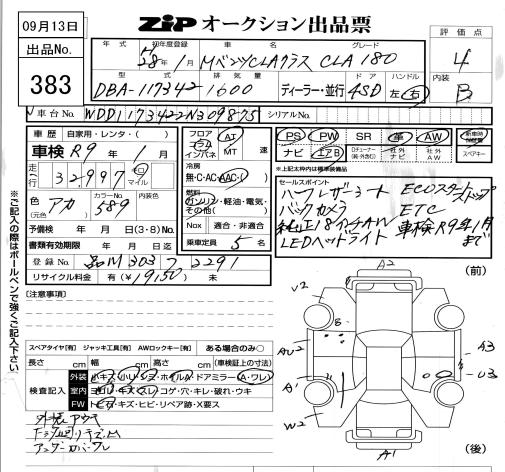 09月13日
ZiP オークション出品票
出品No.
383
年式 初年度登録 車名 グレード
H28年1月 MベンツCLAクラス CLA 180
型式 排気量 ドア ハンドル
DBA-117342 1600 ディーラー・並行 4SD 左 右
評価点
4
内装
B
車台No. WDD1173422N309875 シリアルNo.
車歴 自家用・レンタ・( )
車検 R9年1月
走行 32,997 キロ マイル
色 アカ カラーNo. 589 内装色
(元色)
予備検 年 月 日(3・8)No.
書類有効期限 年 月 日迄
登録No.
リサイクル料金 有(¥19150)未
フロア コラム インパネ AT MT 速
冷房 無・C・AC・AAC・
燃料
ガソリン・軽油・電気・その他( )
Nox 適合・非適合
乗車定員 5 名
PS PW SR 革 AW
ナビ エアB 社外ナビ 社外AW スペアキー
*上記太枠内は標準装備
セールスポイント
ハーフレザーシート ECOスタートストップ
バックカメラ ETC
純正18インチAW 車検R9年1月まで
LEDヘッドライト
※ご記入の際はボールペンで強くご記入下さい
[注意事項]
スペアタイヤ[有] ジャッキ工具[有] AWロックキー[有] ある場合のみ○
長さ cm 幅 cm 高さ cm (車検証上の寸法)
検査記入
外装 小キズ・小ヘコ・ホイル・ドアミラー(A・ワレ)
室内 ヨゴレ・キズ・スレ・コゲ・穴・キレ・破れ・ウキ
FW トビ石・キズ・ヒビ・リペア跡・X要ス
アンダーカバーワレ
(前)
A2
V2
B
AU2
A3
A1
U3
W2
A1
(後)